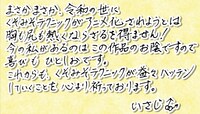 まさかまさか、令和の世に
ぐぬぬテラニックがアニメ化されようとは
胸も尻も熱くならざるを得ません!
今の私があるのはこの作品のお陰ですので
喜びも ひとしおです。
これからも、テラニックが益々ハッテン
していくことを心より祈っております。